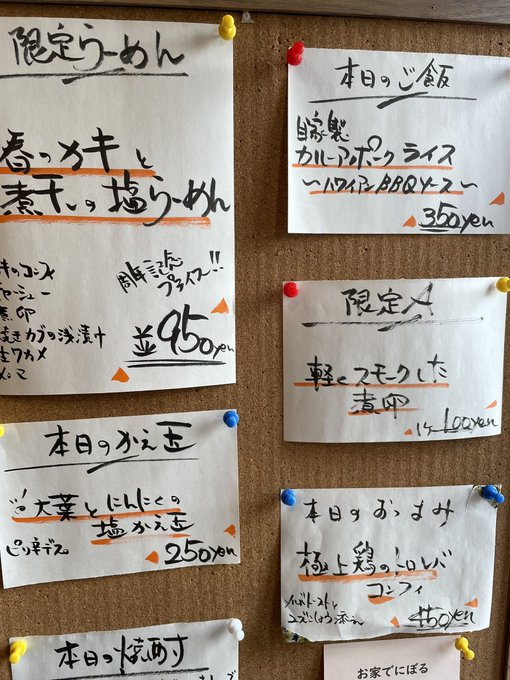 限定らーめん
春のカキと
煮干しの塩らーめん
周年記念
プライス!!
チャーシュー
煮卵
焼きカブの浅漬け
生ワカメ
メンマ
並950yen
本日のご飯
自家製
カルーアポークライス
〜ハワイアンBBQソース〜
350yen
限定A
軽くスモークした
煮卵
1ヶ100yen
本日のかえ玉
大葉とにんにくの
塩かえ玉
ピリ辛デス
250yen
本日のおつまみ
極上鶏のトロレバ
コンフィ
450yen
本日の焼酎
お家でにぼる